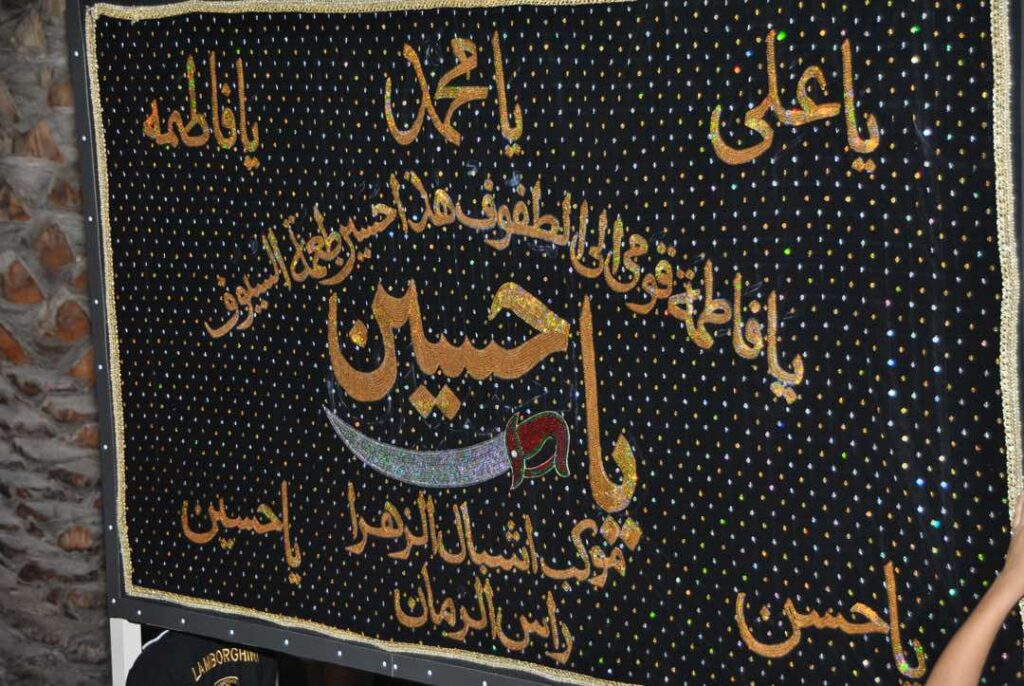 يا علي
يا محمد
يا فاطمه
يا فاطمة قومي الى الطفوف هذا حسين طعمة السيوف
يا حسين
موكب اشبال الزهرا
راس الرمان
يا حسن
يا حسين
LAMBORGHINI